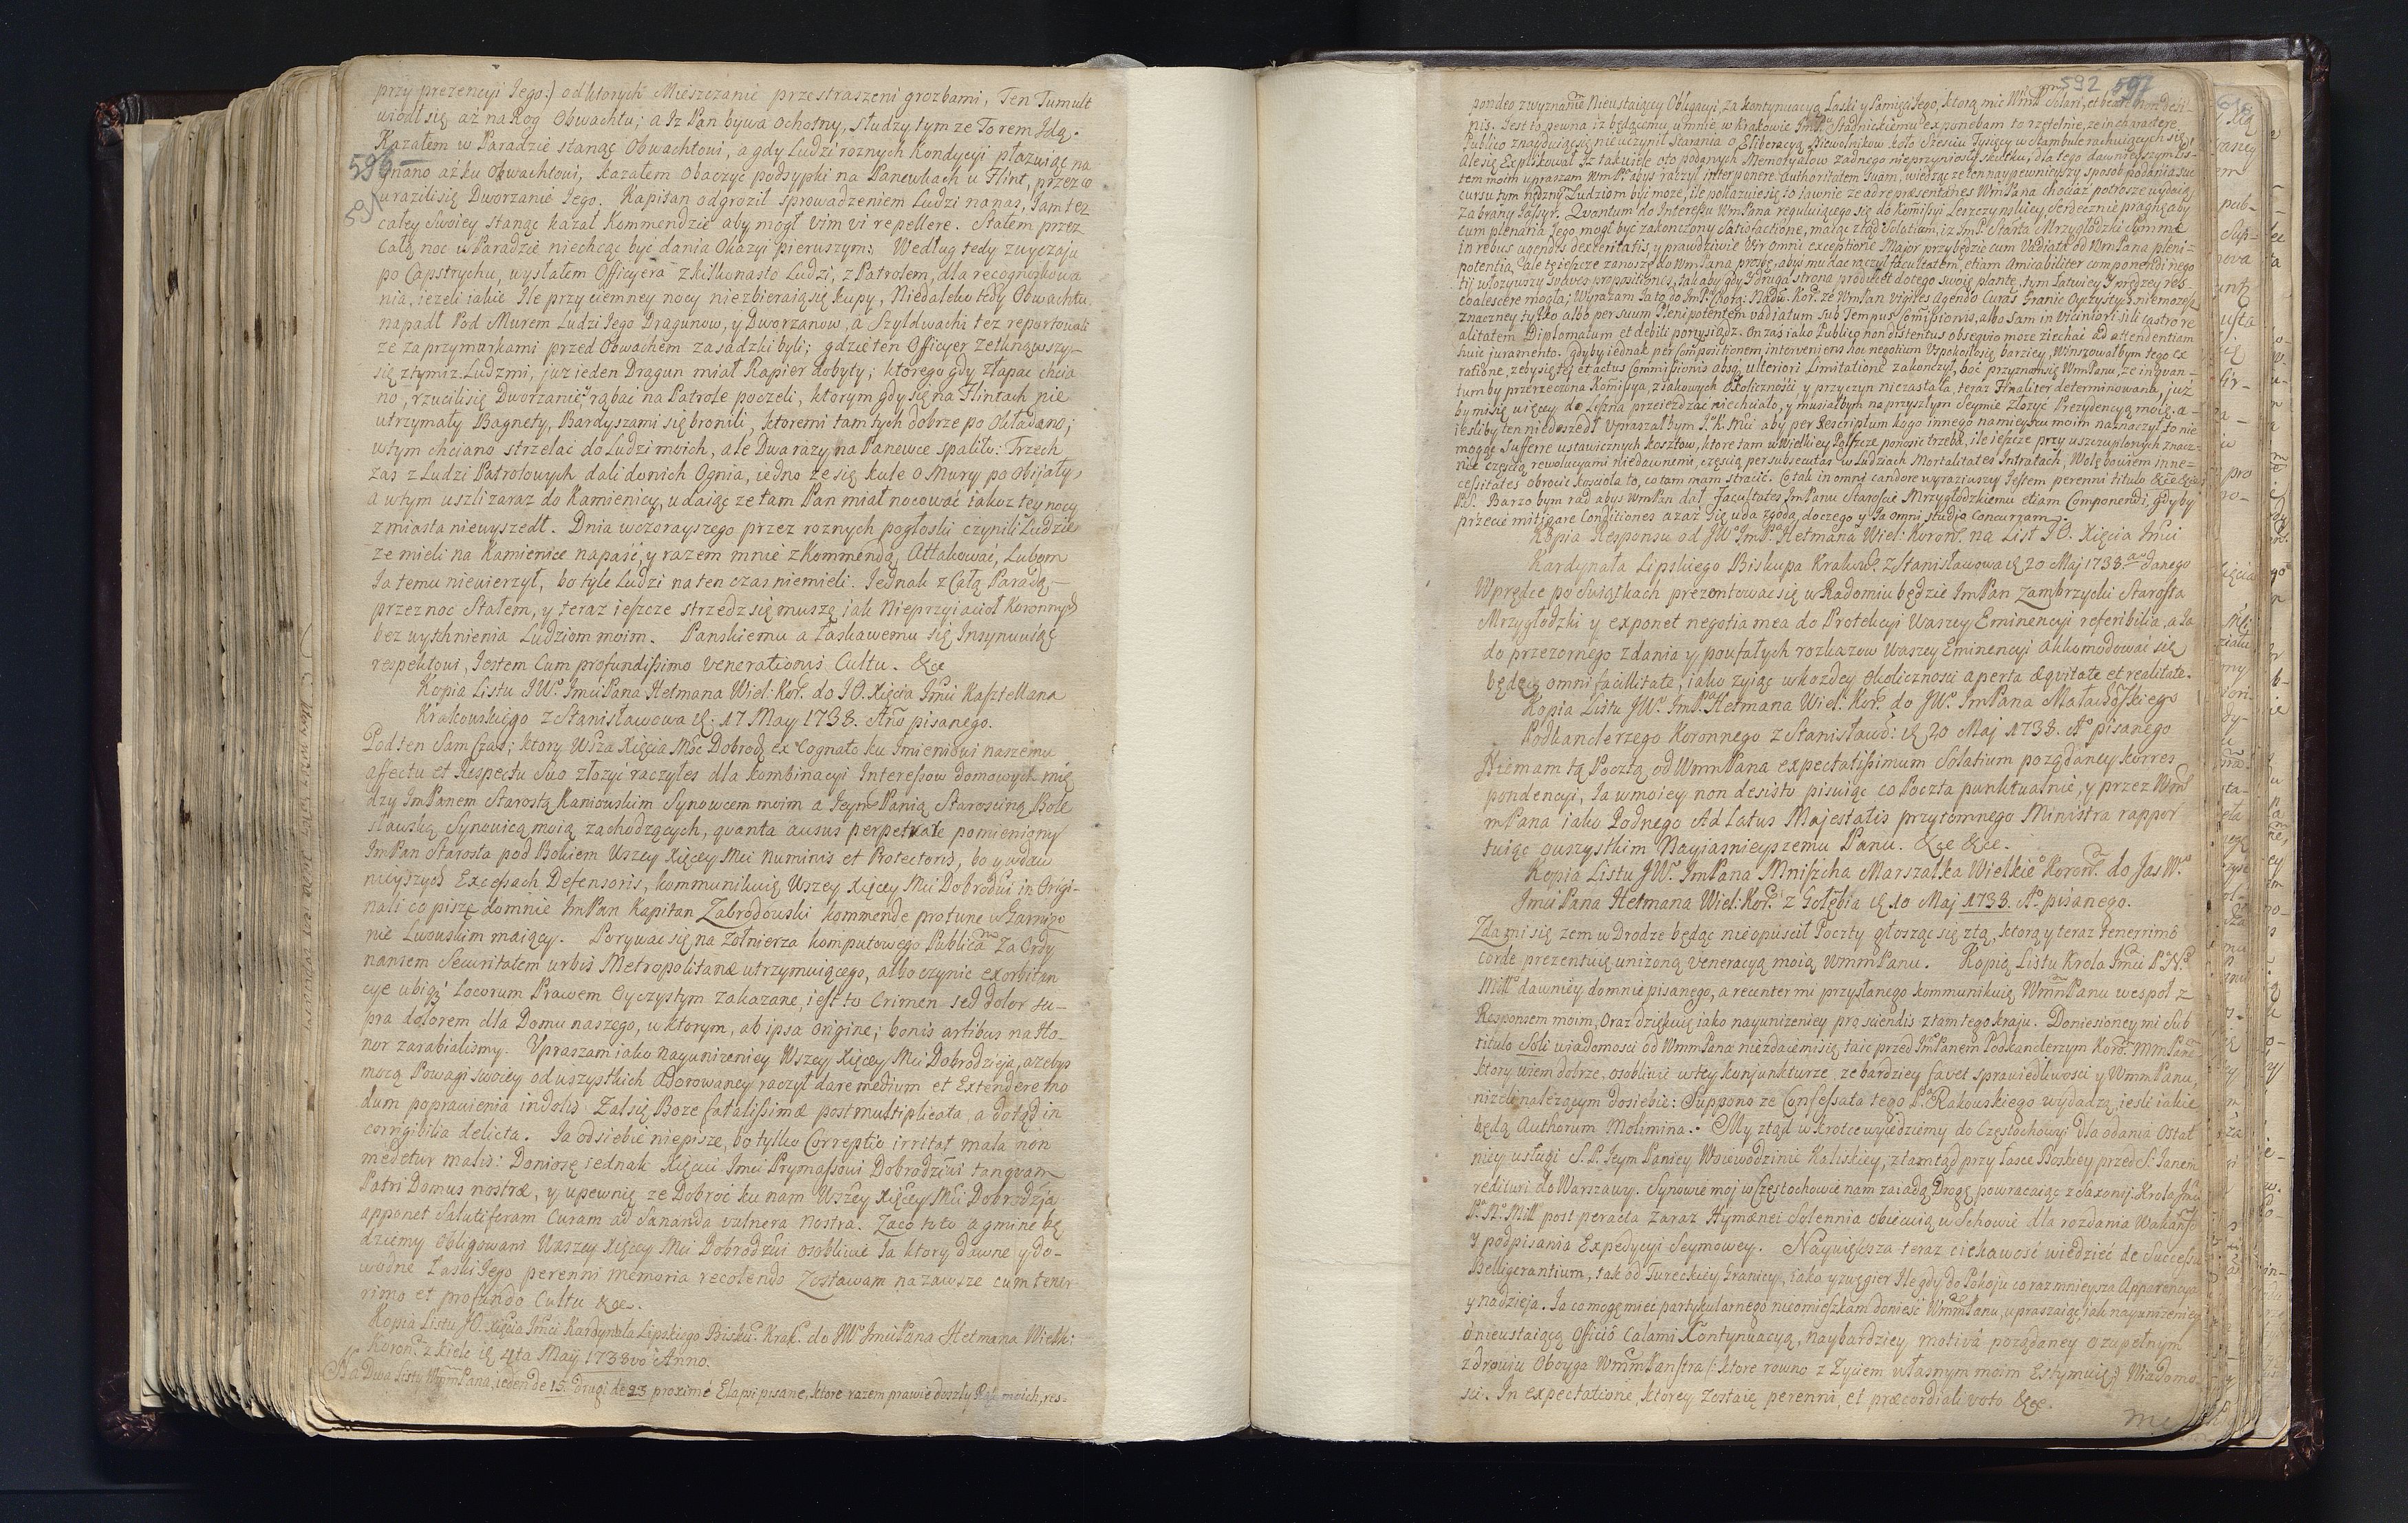 przy prezencyi Jego:) od ktorych Mieszczanie przestraszeni grozbami, Ten Tumult
wiodł się aż na Rog Obwachtu; a Iz Pan bywa ochotny, słudzy tym ze Torem Idą.
Kazałem w Paradzie stanąć Obwachtowi, a gdy Ludzi roznych Kondycyi płazuiąc na
596
gnano aż ku Obwachtowi, kazałem obaczyć podsypki na Panewkach u Flint, przez co
591
urazili się Dworzanie Jego. Kapitan odgroził sprowadzeniem Ludzi na nas, Iam też
całey Swoiey stanąć kazał Kommendzie aby mogł vim vi repellere. Stałem przez
Całą noc w Paradzie niechcąc być dania Okazyi pierwszym: Według tedy zwyczaju
po Capstrychu, wysłałem Officyera z kilkonasto Ludzi, z Patrolem, dla recognoskowa
nia, iezeli iakie Ile przy ciemney nocy niezbieraią się kupy, Niedaleko tedy Obwachtu
napadł Pod Murem Ludzi Jego Dragunow, y Dworzanow, a Szyldwachi tez reportowali
ze za przymurkami przed Obwachem zasadzki byli; gdzie ten Officyer zetknąwszy
się z tymiz Ludzmi, juz ieden Dragun miał Rapier dobyty; ktorego gdy złapać chcia
no, rzucili się Dworzanie, y rąbać na Patrole poczeli, ktorym gdy się na Flintach nie
utrzymały Bagnety, Bardyszami się bronili, ktoremi tamtych dobrze po Okładano;
wtym chciano strzelać do Ludzi moich, ale Dwa razy na Panewce spaliło: Trzech
zas z Ludzi Patrolowych dali do nich Ognia, iedno ze się kule o Mury po obijały,
a wtym uszli zaraz do Kamienicy, udaiąc ze tam Pan miał nocować iakoz tey nocy
z miasta niewyszedł. Dnia wczorayszego przez roznych pogłoski czynili Ludzie
ze mieli na Kamienice napaść, y razem mnie z Kommendą Attakować, Lubom
Ia temu niewierzył, bo tyle Ludzi na ten czas niemieli. Jednak z Całą Paradą
przez noc Stałem, y teraz ieszcze strzedz się muszę iak Nieprzyiacioł Koronnych
bez wytchnienia Ludziom moim. Panskiemu a Łaskawemu się Insynuuiąc
respektowi, Jestem Cum profundissimo venerationis Cultu. &ce
Kopia Listu JWo ImciPana Hetmana Wiel: Kor. do JO. Xięcia Imci Kasztellana
Krakowskiego z Stanisławowa d. 17 May 1738. Anno pisanego.
Pod ten Sam Czas; ktory Wsza Xięcia Msc Dobrodz ex Cognato ku Imieniowi naszemu
affectu et Respectu Suo złozyć raczyłes dla kombinacyi Interessow domowych mię
dzy ImPanem Starostą Kaniowskim Synowcem moim a Ieym Panią Starosciną Bole
sławską Synowicą moią zachodzących, quanta ausus perpetrate pomieniony
ImPan Starosta pod Bokiem Wszey Xięcey Mci Numinis et Protectoris, bo y w daw
nieyszych Excessach Defensoris, kommunikuię Wszey Xięcey Mci Dobrodzui in Origi-
nali co pisze do mnie ImPan Kapitan Zabrodowski kommende pro tunc w Garnizo
nie Lwowskim maiący. Porywać się na Zołnierza komputowego Publica za Ordy
nansem Securitatem urbis Metropolitanæ utrzymuiącego, albo czynic exorbitan
cye ubiqz locorum Prawem Oyczystym zakazane, iest to Crimen sed dolor su-
pra dolorem dla Domu naszego, w ktorym, ab ipsa origine; bonis artibus na Ho-
nor zarabialismy. Upraszam iako nayunizeniey Wszey Xięcey Mci Dobrodzieja, azebys
mocą Powagi swoiey od wszystkich Adorowaney raczył dare medium et Extendere mo
dum poprawienia indolis Zal się Boze fatalissimæ post multiplicata, a dotąd in
corrigibilia delicta. Ia od siebie niepiszę, bo tylko Correptio irritat mala non
medetur malis: Doniosę iednak Xięciu Imci Prymassowi Dobrodzieiowi tanquam
Patri Domus nostræ, y upewnię ze Dobroć ku nam Wszey Xięcey Mci Dobrodzeja
apponet Salutiferam Curam ad Sananda vulnera nostra. Zaco toto agmine bę
dziemy Obligowani Waszey Xięcey Mci Dobrodzui osobliwie Ia ktory dawne y do-
wodne Łaski Jego perenni memoria recolendo Zostawam na zawsze cum tener-
rimo et profundo Cultu &ce.
Kopia Listu JO. Xięcia Imci Kardynała Lipskiego Bisku. Krak. do JWo ImciPana Hetmana Wielk:
Koron. z Kielc d. 4ta May 1738vo Anno.
Na Dwa Listy WmmPana, ieden de 15. drugi de 23 proximé Elapsi pisane, ktore razem prawie doszły Rąk moich, res-
592 597
pondeo zwyznaniem Nieustaiący Obligacyi, za kontynuacyą Łaski y Pamięci Jego, ktorą mie Wmm Solari, et beare non desi-
nis. Jest to pewna iz będącemu u mnie w Krakowie ImP. Stadnickiemu exponebam to rzetelnie, ze in charactere
Publico znayduiącsię nie uczynił starania o Eliberacyą Niewolnikow koło Sześciu Tysięcy w Stambule rachuiących się,
Ale się Explikował Iz takuiele oto podanych Memoryałow zadnego nieprzyniosły skutku, dla tego dawnieyszym Lis-
tem moim upraszam WmPP abys raczył interponere authoritatem Suam, wiedząc ze ten naypewnieyszy sposob podania suc
cursu tym nędznym Ludziom być moze, ile pokazuie się to iawnie ze ad repræsentanes WmPana chociaz potrosze wydaią
Zabrany Jassyr. Quantum do Interessu WmPana reguluiącego się do Komissyi Leszczynskiey Serdecznie pragnę aby
cum plenaria Jego mogł być zakonczony Satisfactione, maiąc ztąd Solatium, iz ImP. Starta Mrzygłodzki Summæ
in rebus agendis dexteritatis, y prawdziwie Vir omni exceptione Major przybędzie cum Vadiata od WmPana pleni-
potentia, ale tę ieszcze zanoszę do WmPana prozbę, abys mu dać raczył facultatem, etiam Amicabiliter componendi nego
tij włozywszy Suaves propositiones, tak aby gdy y druga strona producet do tego swoię plantę, tym łatwiey y prędzey res
coalescere mogła; Wyrazam Ia to do ImP. Chorą: Nadw. Kor. ze WmPan vigiles Agendo Curas Granic Oyczystych niemozesz
znaczney tylko albo per suum Plenipotentem vadiatum sub Tempus Commissionis, albo sam in viciniori sili castro re
alitatem Diplomatum et debiti ponysiądz. On zas iako Publico non distentus obsequio moze ziechać ad attendentiam
huic juramento. Gdyby iednak per Compositionem interveniens hoc negotium Uspokoiło się barziey, Winszowałbym tego ex
ratione, zeby się tey et actus Commissionis absq. ulteriori Limitatione zakonczył, boć przyznam się WmPanu, ze in quan-
tum by przerzeczona Komissya, z iakowych okoliczności y przyczyn niezastała, teraz finaliter determinowana, juz
by mi się więcey do Leszna przeiezdzać niechciało, y musiałbym na przyszłym Seymie złozyć Prezydencyą moię, a-
iesliby ten niedoszedł Upraszałbym J. K. Mci aby per Rescriptum kogo innego na mieyscu moim naznaczył, bo nie
mogę Sufferre ustawicznych kosztow, ktore tam w Wielkiey Polszcze ponosic trzeba, ile ieszcze przy uszczuplonych znacz-
nie częscią rewolucyami niedawnemi, częscią per subsecutas w Ludziach Mortalitates Intratach, Wolę bowiem in ne-
cessitates obrocic kosciola to, co tam mam stracić. Co tak in omni candore wyraziwszy Jestem perenni titulo &ce &ce
P.S. Barzo bym rad abys WmPan dał facultates ImPanu Staroscie Mrzygłodzkiemu etiam Componendi, gdyby
przecie mitigare Conditiones azaz się uda zgoda, do czego y Ia omni studio Concurram.
Kopia Responsu od JWo ImPa Hetmana Wiel: Koron. na List JO. Xięcia Imci
Kardynała Lipskiego Biskupa Krakow. z Stanisławowa d. 20 Maj 1738. ao danego
Wprędce po Swiątkach prezentować się w Radomiu będzie ImPan Zambrzycki Starosta
Mrzygłodzki y exponet negotia mea do Protekcyi Waszey Eminencyi referibilia, a Ia
do przezornego zdania y poufałych rozkazow Waszey Eminencyi akkomodować się
będę cum omni facillitate, iako zyiąc w kozdey okoliczności aperta æqvitate et realitate.
Kopia Listu JWo ImPa Hetmana Wiel: Kor. do JWo ImPana Małachowskiego
Podkanclerzego Koronnego z Stanisław: d. 20 Maj 1738. Ao pisanego
Niemam tą Pocztą od WmmPana expectatissimum Solatium poządaney korres
pondencyi, Ia w moiey non desisto pisuiąc co Poczta punktualnie, y przez Wm
mPana iako Godnego Ad Latus Majestatis przytomnego Ministra rappor
tuiąc o wszystkim Nayiasnieyszemu Panu. &ce &ce.
Kopia Listu JWo ImPana Mniszcha Marszałka Wielkie Koron. do Jas Wo
ImciPana Hetmana Wiel: Kor. z Gołębia d. 10 Maj 1738. Ao pisanego.
Zda mi się zem w Drodze będąc nieopuscił Poczty głosząc się ztą, ktorą y teraz tenerrimo
corde prezentuię unizoną veneracyą moią WmmPanu. Kopią Listu Krola Imci P.N.
Mill. dawniey do mnie pisanego, a recenter mi przysłanego kommunikuię WmmPanu wespoł z
Responsem moim, Oraz dziękuię iako nayunizeniey pro sciendis z tamtego kraju. Doniesioney mi Sub
titulo Soli wiadomosci od WmmPana niezdaiemi się taic przed ImPanem Podkanclerzym Koro. MmPane
ktory wiem dobrze, osobliwie w tey konjunkturze, ze bardziey favet sprawiedliwosci y WmmPanu,
nizeli nalezącym do siebie: Suppono ze Confessata tego Pa Rakowskiego wydadzą, iesli iakie
będą Authorum Molimina. My ztąd w krotce wyiedziemy do Częstochowy dla odania Ostat
niey usługi S.P. Jeym Paniey Woiewodzinie Kaliskiey, z tamtąd przy łasce Boskiey przed S. Janem
redituri do Warszawy. Synowie moj w Częstochowie nam zaiadą Drogę powracaiąc z Saxonij. Krola Imci
Pa No Mill post peracta zaraz Hymænei Solennia obiecuią w Schowie dla rozdania Wakansow
y podpisania Expedycyi Seymowey. Naywiększa teraz ciekawość wiedzieć de Successu
Belligerantium, tak od Tureckiey Granicy, iako y z węgier Ile gdy do Pokoju coraz mnieysza Apparencya
y nadzieja. Ia co mogę miec partykularnego nieomieszkam donieść WmmPanu, upraszaiąc iak nayunizeniey
o nieustaiącą Officio Calami Kontynuacyą, naybardziey motivâ pozadaney o zupełnym
zdrowiu Oboyga WmmPanstra (: ktore rowno z Zyciem własnym moim Estymuię:) Wiadomo-
sci. In expectatione, ktorey zostaię perenni, et præcordiali voto &ce.